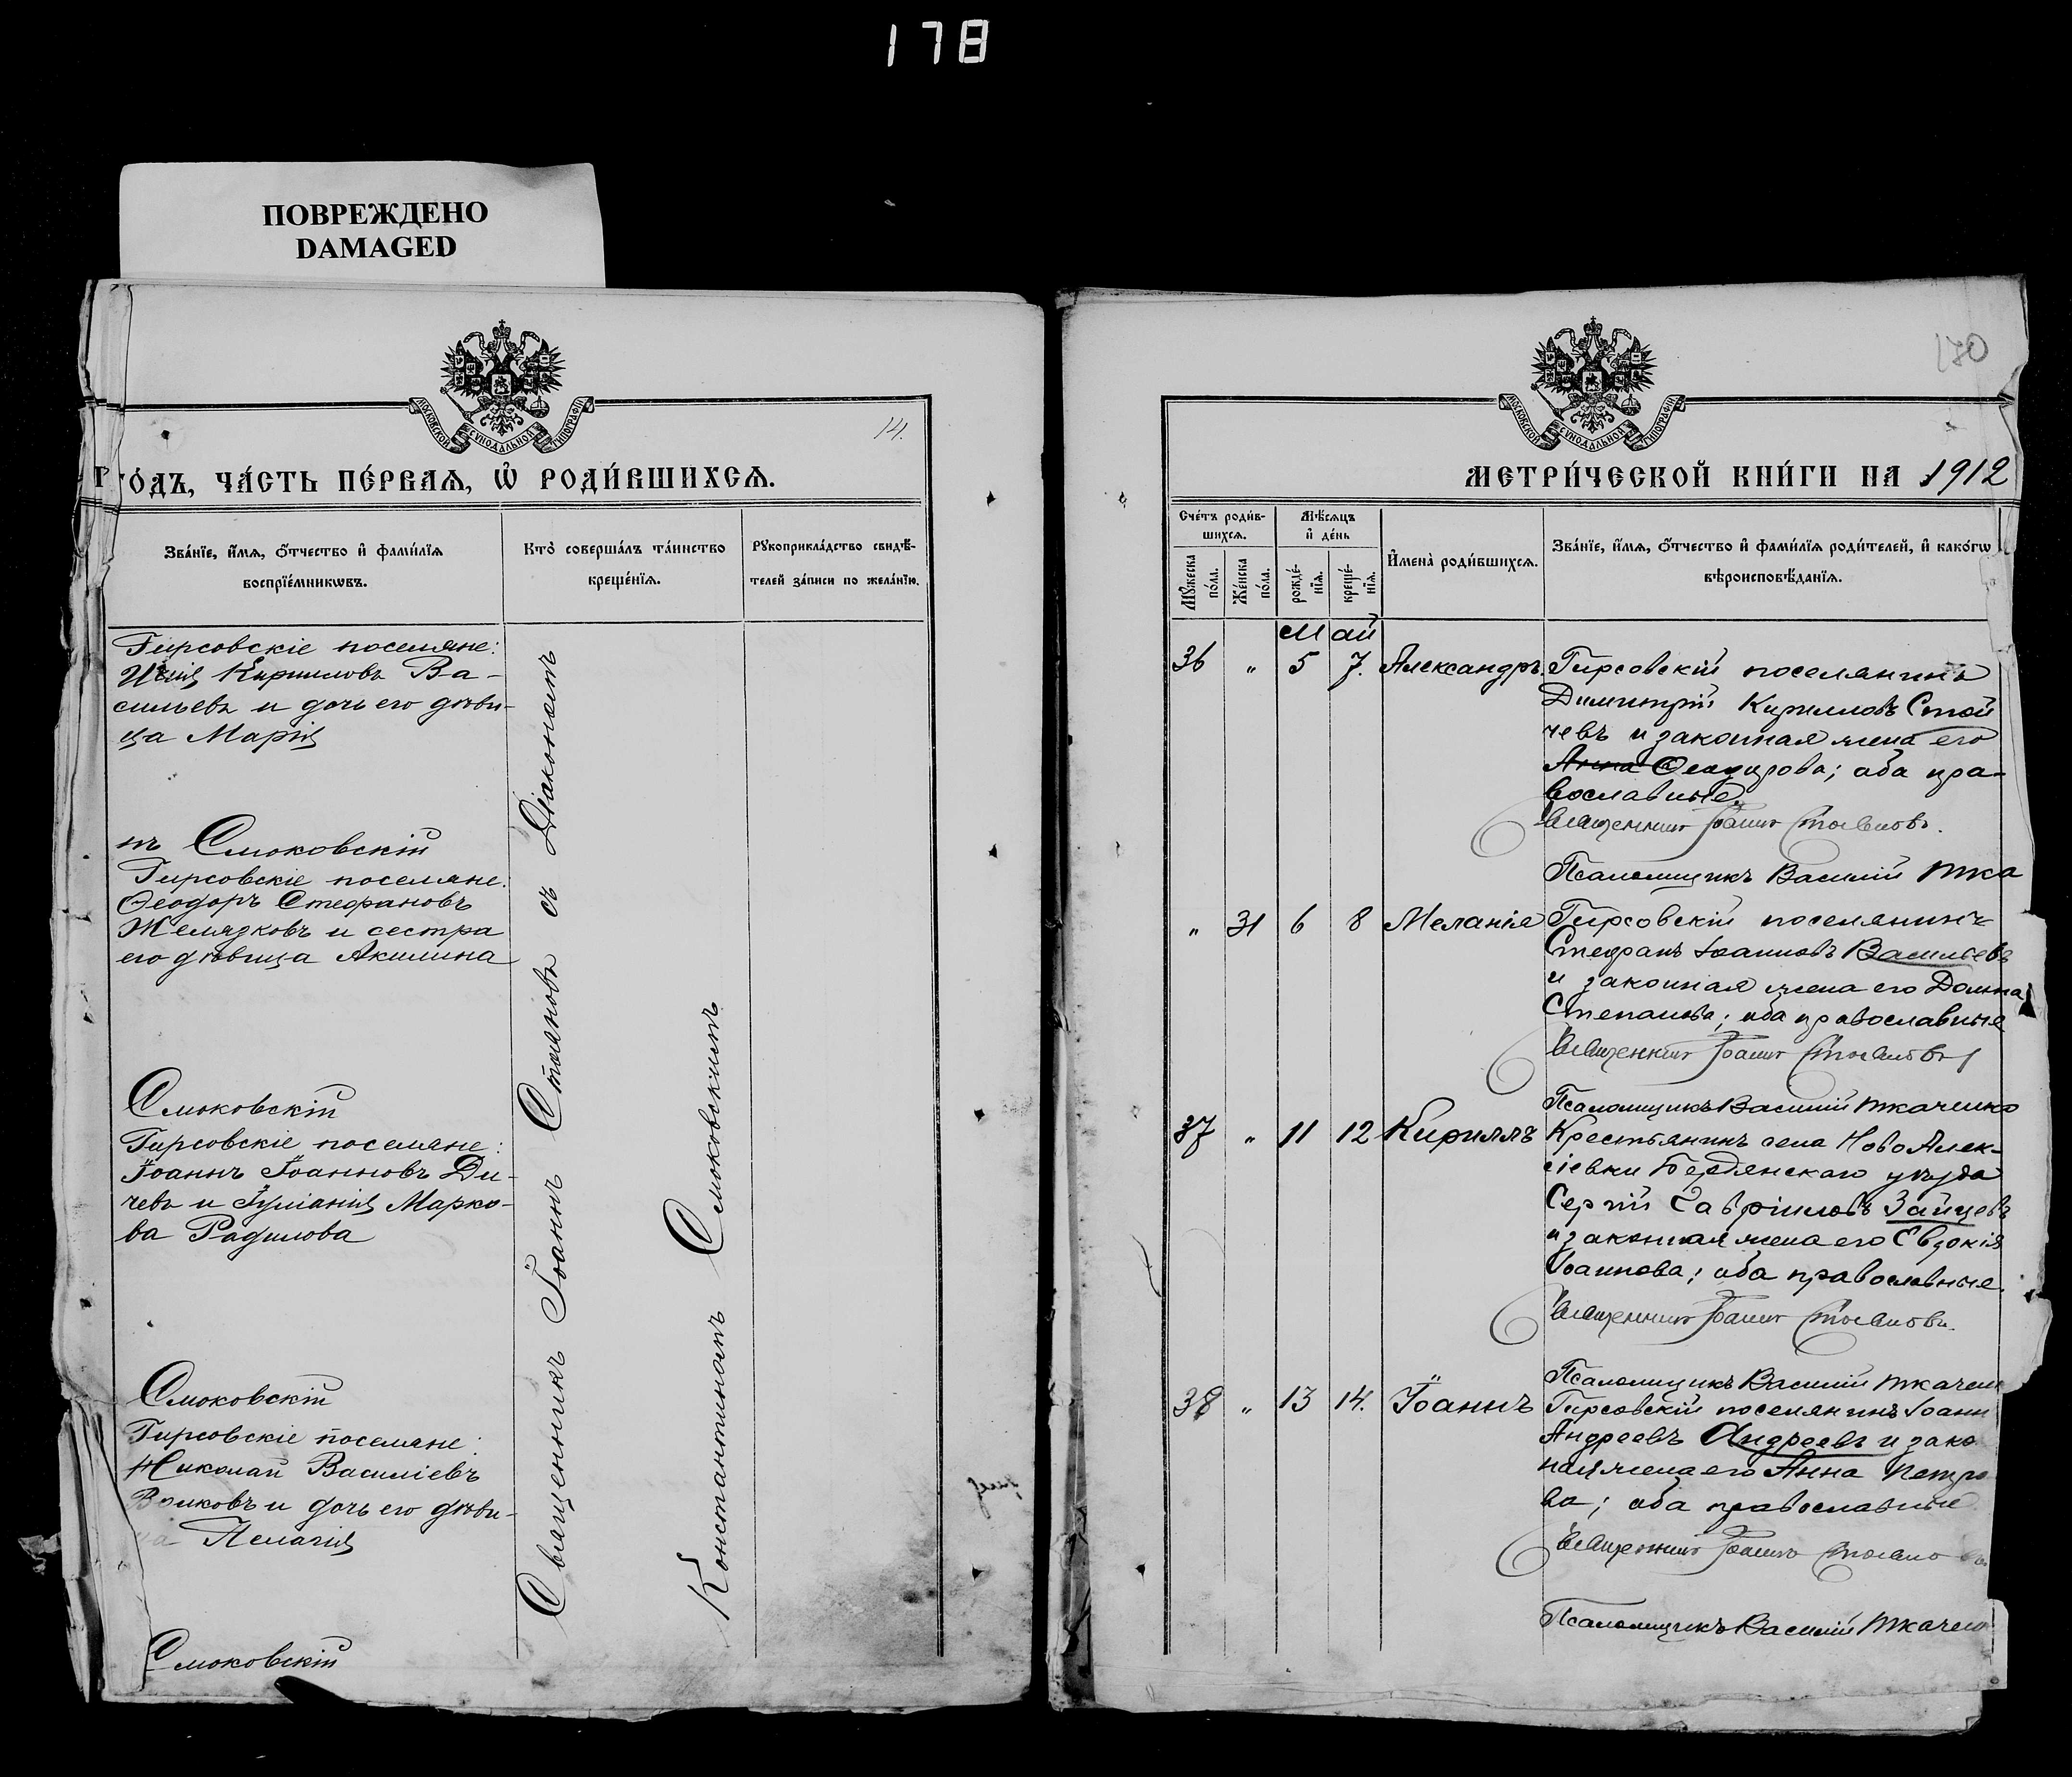 178
ПОВРЕЖДЕНО
DAMAGED
МОСКОВСКОЙ СѴНОДАЛЬНОЙ ТИПОГРАФІИ
14.
Го́дъ, ча́сть пе́рваѧ, ѡ҆ роди́вшихсѧ.
Зва́нїе, и҆́мѧ, ѻ҆́тчество и҆ фами́лїѧ
воспрїе́мникѡвъ.
Кто̀ соверша́лъ та́инство
креще́нїѧ.
Рꙋкоприкла́дство свидѣ́-
телей за́писи по жела́нїю.
Гирсовскіе поселяне:
Кирилловъ Ва-
сильевъ и дочь его дѣви-
ца Марія
нъ Смоковскій
Гирсовскіе поселяне:
Ѳеодоръ Стефановъ
Желязковъ и сестра
его дѣвица Акилина
Смоковскій
Гирсовскіе поселяне:
Іоаннъ Іоанновъ Ди-
чевъ и Іуліанія Марко-
ва Радилова
Смоковскій
Гирсовскіе поселяне:
Николай Василіевъ
Волковъ и дочь его дѣви-
ца Пелагія
Смоковскій
Священникъ Іоаннъ Стояновъ съ Діакономъ
Константиномъ Смоковскимъ
170
МОСКОВСКОЙ СѴНОДАЛЬНОЙ ТИПОГРАФІИ
Метри́ческой кни́ги на 1912
Сче́тъ роди́в-
шихсѧ.
Мꙋ́жеска по́ла.
Же́нска по́ла.
Мѣ́сѧцъ
и҆ де́нь
рожде́-нїѧ.
креще́-нїѧ.
И҆мена̀ роди́вшихсѧ.
Зва́нїе, и҆́мѧ, ѻ҆́тчество и҆ фами́лїѧ роди́телей, и҆ како́гѡ
вѣроисповѣ́данїѧ.
Май
36 „ 5 7. Александръ. Гирсовскій поселянинъ
Димитрій Кирилловъ Стой
чевъ и законная жена его
Анна Ѳеодорова; оба пра-
вославные.
Священникъ Іоаннъ Стояновъ.
Псаломщикъ Василій Тка
„ 31 6 8 Меланія Гирсовскій поселянинъ
Стефанъ Іоанновъ Васильевъ
и законная жена его Домна
Степанова; оба православные
Священникъ Іоаннъ Стояновъ
Псаломщикъ Василій Ткаченко
37 „ 11 12 Кириллъ Крестьянинъ села НовоАлек-
сіевки Бердянскаго уѣзда
Сергій Гавріиловъ Зайцевъ
и законная жена его Евдокія
Іоаннова; оба православные.
Священникъ Іоаннъ Стояновъ.
Псаломщикъ Василій Ткачен
38 „ 13 14. Іоаннъ Гирсовскій поселянинъ Іоанн
Андреевъ Андреевъ и зако
ная жена его Анна Петро
ва; оба православные.
Священникъ Іоаннъ Стояновъ
Псаломщикъ Василій Ткачен